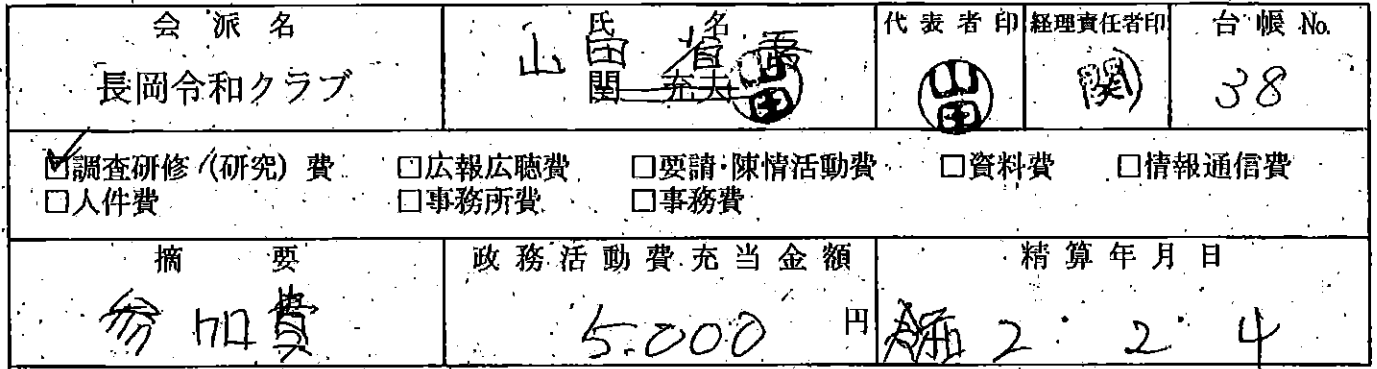 会派名 氏名 代表者印 経理責任者印 台帳No.
長岡令和クラブ 山田省吾 山田 関 38
関 充夫 山田
☑調査研修(研究)費 □広報広聴費 □要請・陳情活動費 □資料費 □情報通信費
□人件費 □事務所費 □事務費
摘要 政務活動費充当金額 精算年月日
参加費 5.000円 令和2・2・4